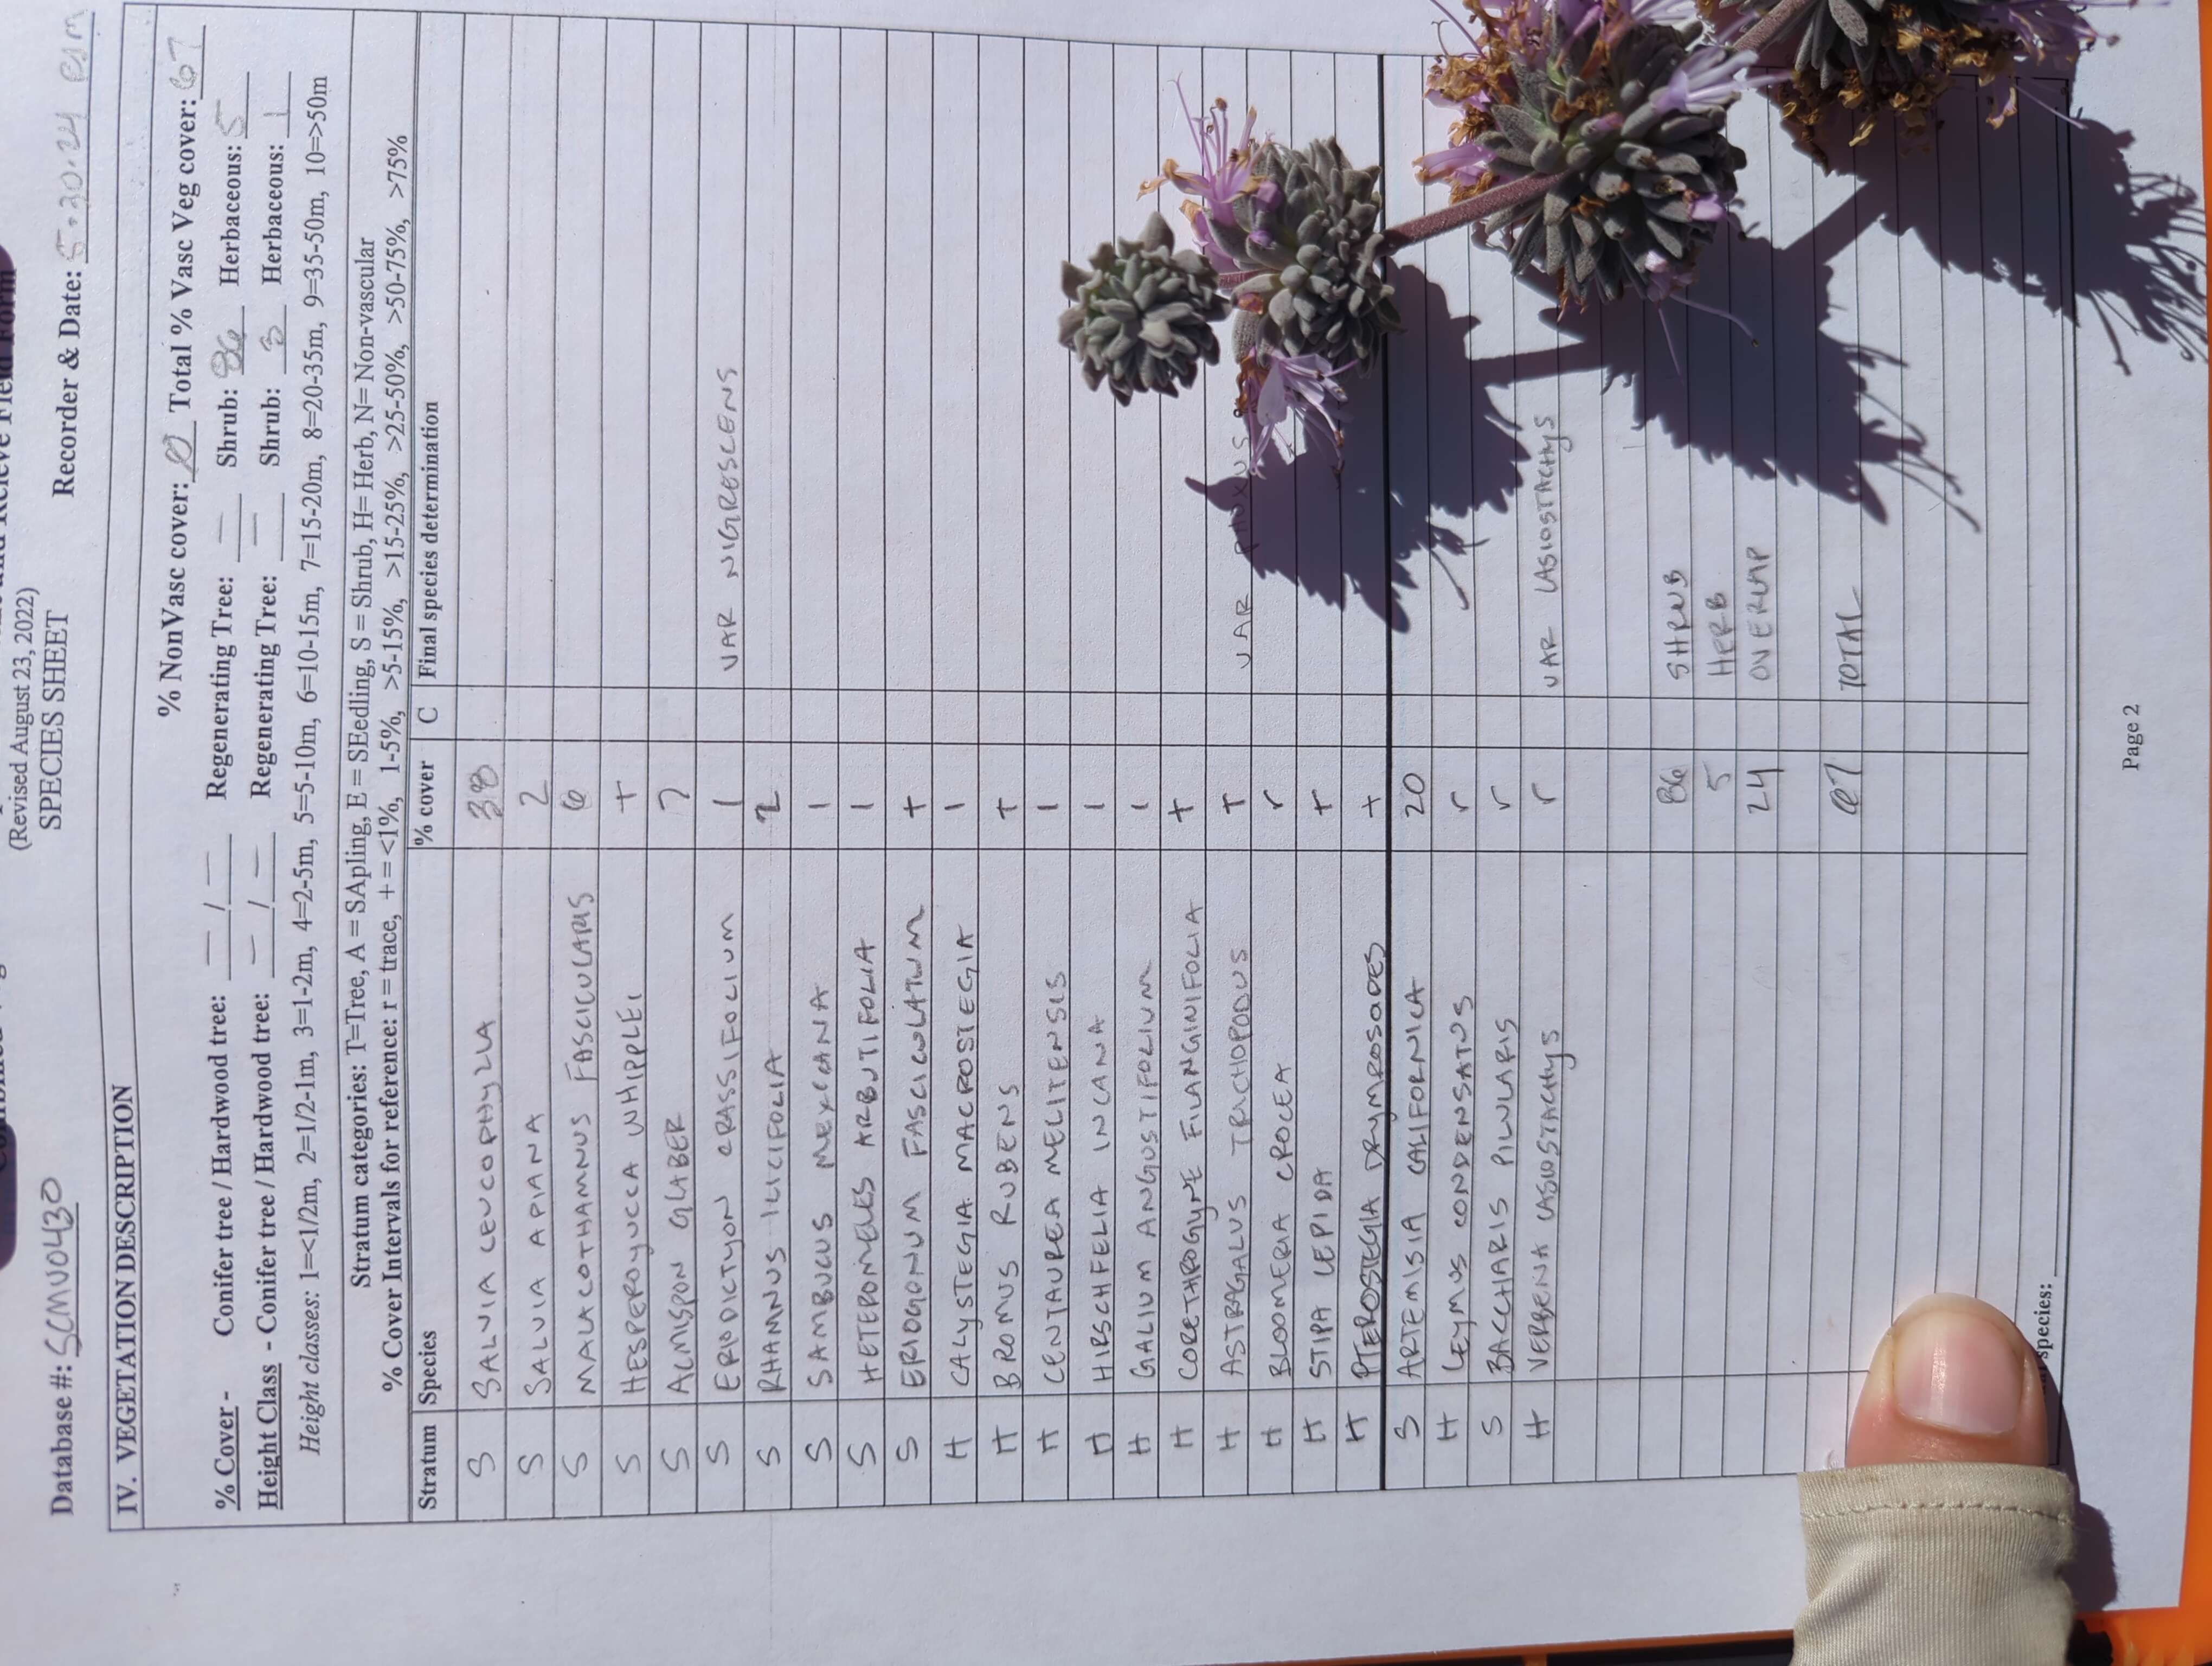 (Revised August 23, 2022)
SPECIES SHEET
Database #: SCMV0430 Recorder & Date: 5.30.24
IV. VEGETATION DESCRIPTION
% NonVasc cover: 0 Total % Vasc Veg cover: 67
% Cover - Conifer tree / Hardwood tree: — / — Regenerating Tree: — Shrub: 86 Herbaceous: 5
Height Class - Conifer tree / Hardwood tree: — / — Regenerating Tree: — Shrub: 3 Herbaceous: 1
Height classes: 1=<1/2m, 2=1/2-1m, 3=1-2m, 4=2-5m, 5=5-10m, 6=10-15m, 7=15-20m, 8=20-35m, 9=35-50m, 10=>50m
Stratum categories: T=Tree, A = SApling, E = SEedling, S = Shrub, H= Herb, N= Non-vascular
% Cover Intervals for reference: r = trace, + = <1%, 1-5%, >5-15%, >15-25%, >25-50%, >50-75%, >75%
Stratum Species % cover C Final species determination
S SALVIA LEUCOPHYLLA 38
S SALVIA APIANA 2
S MALACOTHAMNUS FASCICULARIS 6
S HESPEROYUCCA WHIPPLEI +
S ACMISPON GLABER 7
S ERIODICTYON CRASSIFOLIUM 1 VAR NIGRESCENS
S RHAMNUS ILICIFOLIA 2
S SAMBUCUS MEXICANA 1
S HETEROMELES ARBUTIFOLIA 1
S ERIOGONUM FASCICULATUM +
H CALYSTEGIA MACROSTEGIA 1
H BROMUS RUBENS +
H CENTAUREA MELITENSIS 1
H HIRSCHFELIA INCANA 1
H GALIUM ANGUSTIFOLIUM 1
H CORETHROGYNE FILANGINIFOLIA +
H ASTRAGALUS TRICHOPODUS + VAR
H BLOOMERIA CROCEA r
H STIPA LEPIDA +
H PTEROSTEGIA DRYMAROSODES +
S ARTEMISIA CALIFORNICA 20
H LEYMUS CONDENSATUS r
S BACCHARIS PILULARIS r
H VERBENA LASIOSTACHYS r VAR LASIOSTACHYS
86 SHRUB
5 HERB
24 OVERLAP
67 TOTAL
species:
Page 2